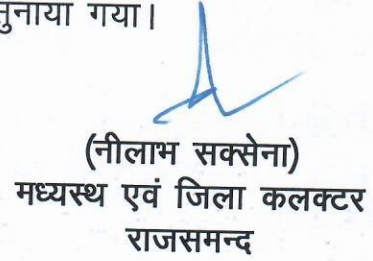 सुनाया गया।
(नीलाभ सक्सेना)
मध्यस्थ एवं जिला कलक्टर
राजसमन्द